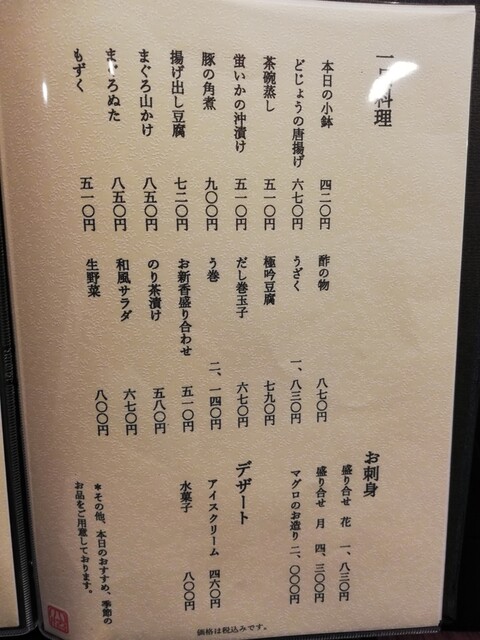 一品料理
本日の小鉢 四二〇円
どじょうの唐揚げ 六七〇円
茶碗蒸し 五一〇円
蛍いかの沖漬け 五一〇円
豚の角煮 九〇〇円
揚げ出し豆腐 七二〇円
まぐろ山かけ 八五〇円
まぐろぬた 八五〇円
もずく 五一〇円
酢の物 八七〇円
うざく 一、八三〇円
極吟豆腐 七九〇円
だし巻玉子 六七〇円
う巻 二、一四〇円
お新香盛り合わせ 五一〇円
のり茶漬け 五八〇円
和風サラダ 六七〇円
生野菜 八〇〇円
お刺身
盛り合せ 花 一、八三〇円
盛り合せ 月 四、三〇〇円
マグロのお造り 二、〇〇〇円
デザート
アイスクリーム 四六〇円
水菓子 八〇〇円
*その他、本日のおすすめ、季節の
お品をご用意しております。
価格は税込みです。